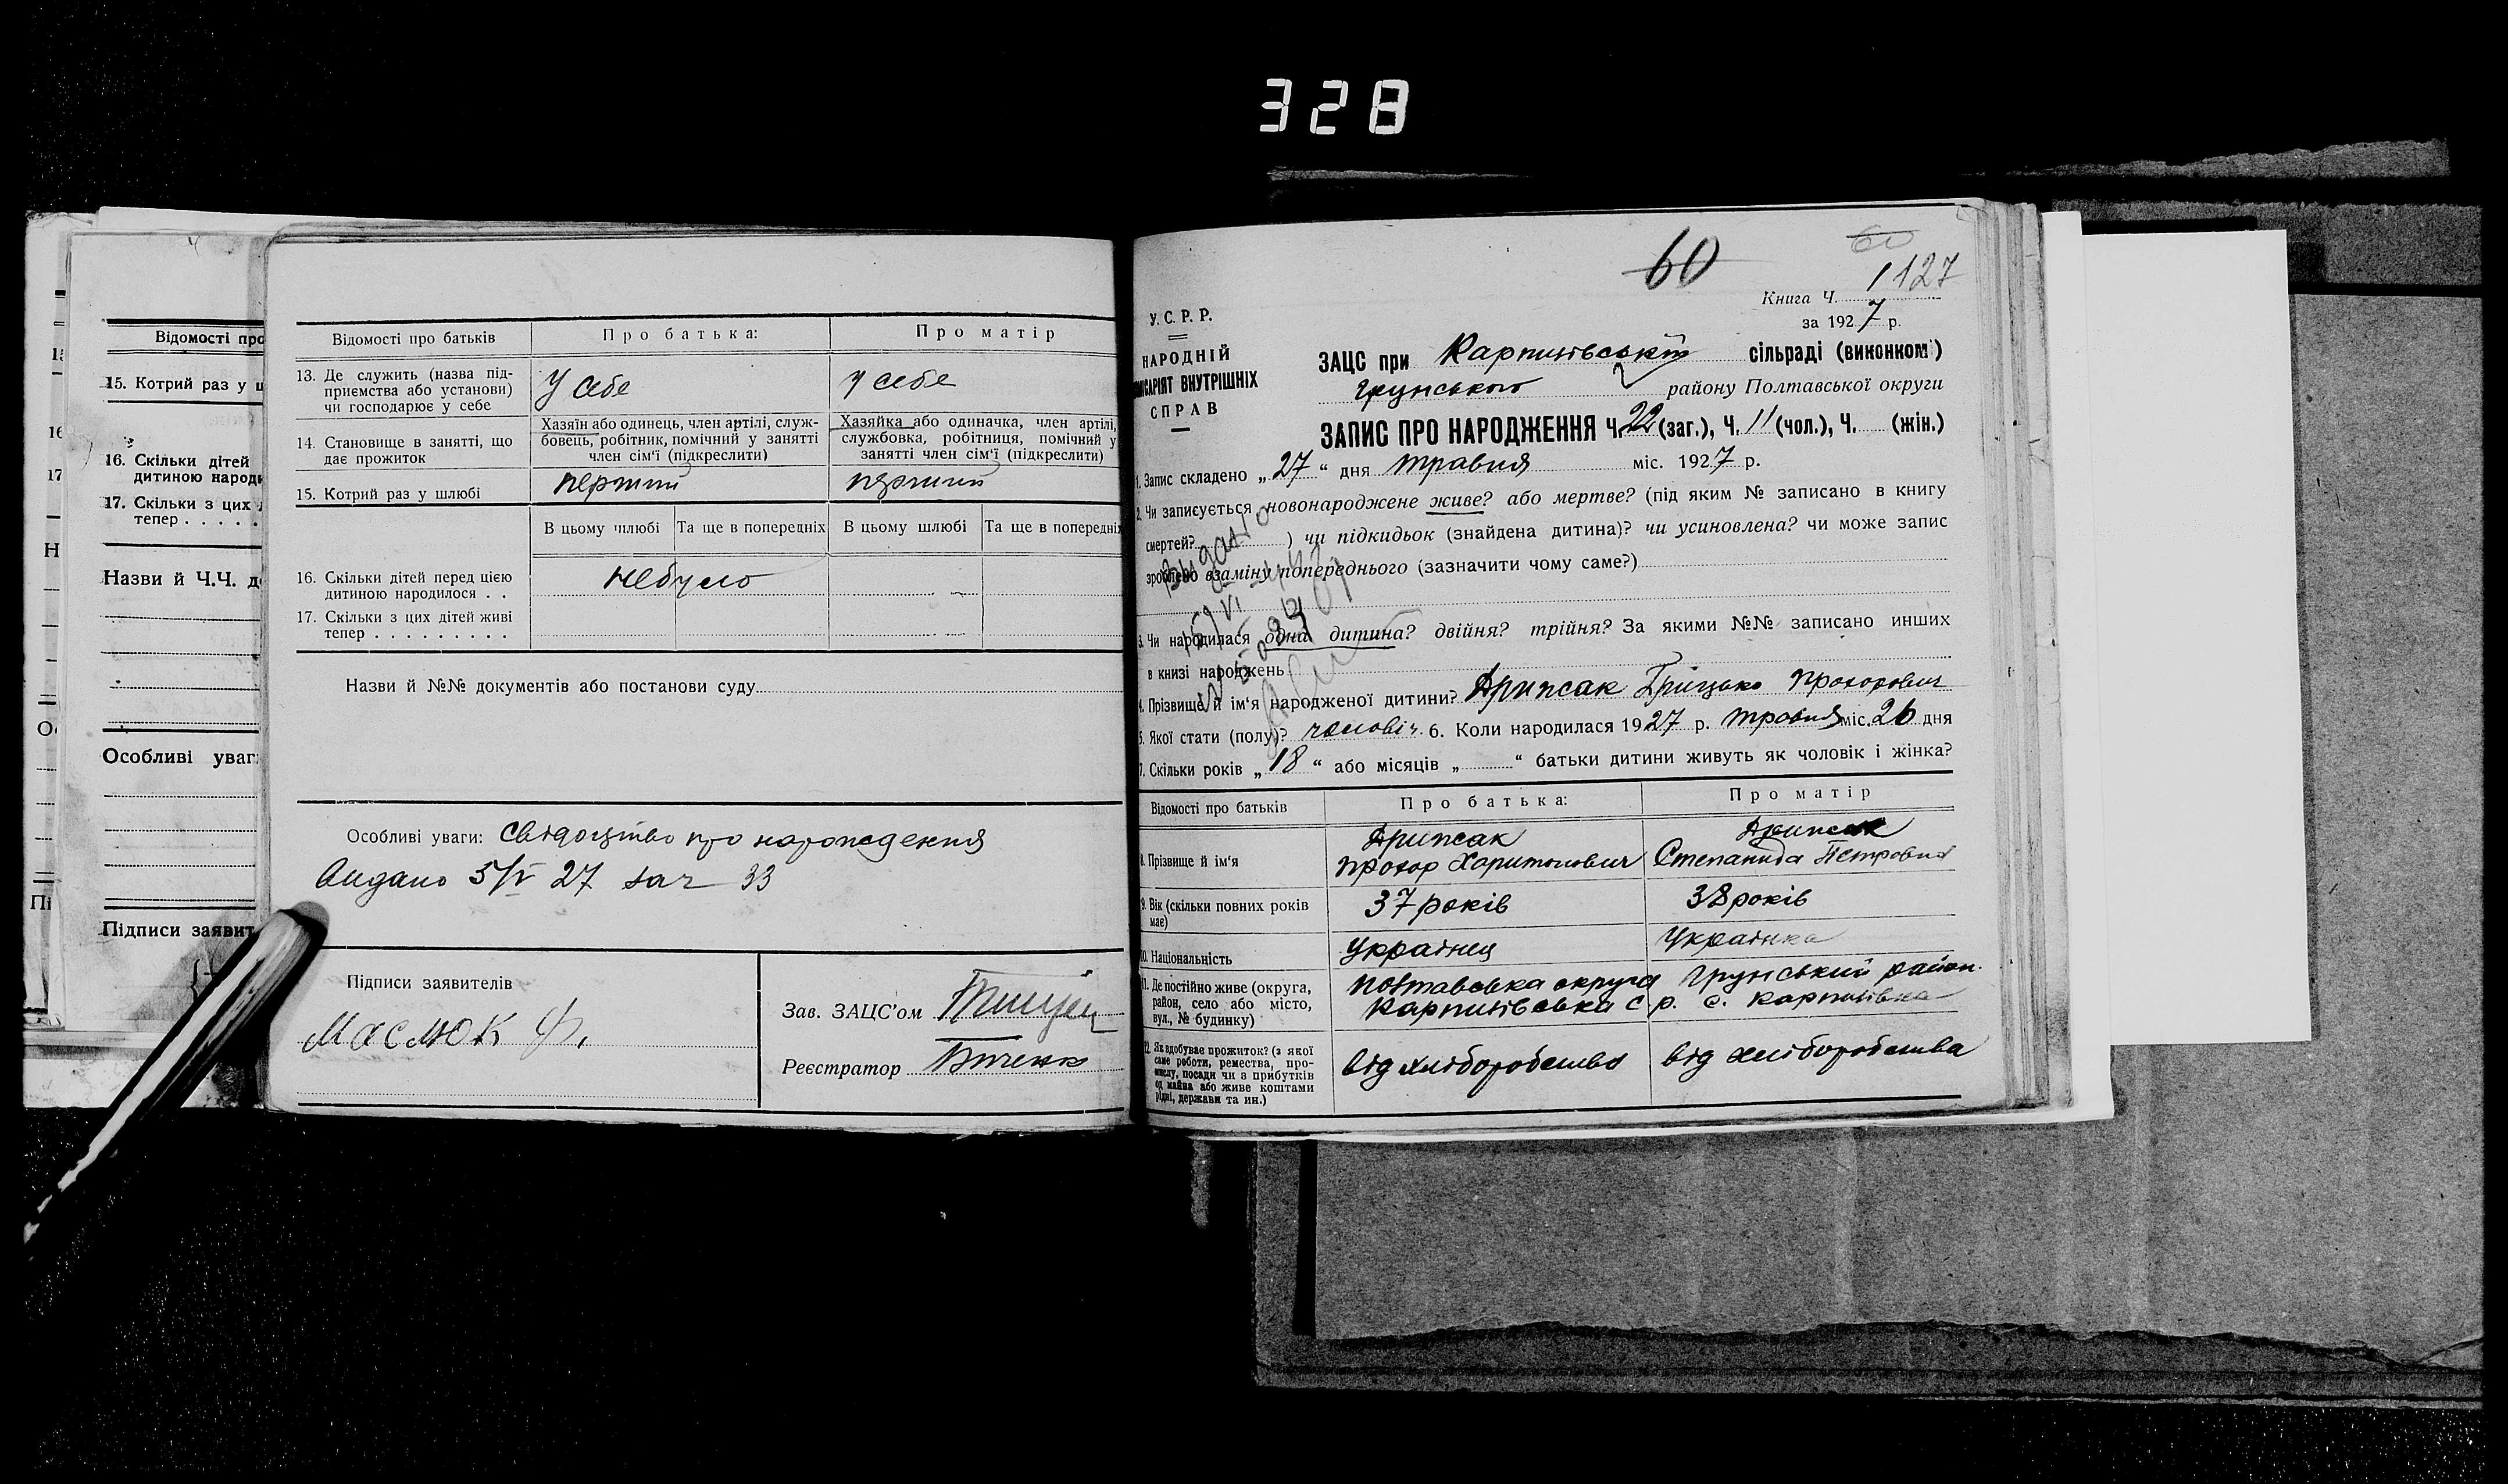 328
Відомості про
15. Котрий раз у ш
16. Скільки дітей
дитиною народи
17. Скільки з цих
тепер . . . . .
Назви й Ч.Ч. д
Особливі уваг
Підписи заявит
Відомості про батьків
Про батька:
Про матір
13. Де служить (назва під-
приємства або установи)
чи господарює у себе
У себе
у себе
14. Становище в занятті, що
дає прожиток
Хазяїн або одинець, член артілі, служ-
бовець, робітник, помічний у занятті
член сім'ї (підкреслити)
Хазяйка або одиначка, член артілі,
службовка, робітниця, помічний у
занятті член сім'ї (підкреслити)
15. Котрий раз у шлюбі
перший
перший
В цьому шлюбі
Та ще в попередніх
В цьому шлюбі
Та ще в попередніх
16. Скільки дітей перед цією
дитиною народилося . .
небуло
17. Скільки з цих дітей живі
тепер . . . . . . . . .
Назви й №№ документів або постанови суду
Особливі уваги: Свідоцтво про народження
Видано 5/V 27 зач 33
Підписи заявителів
Маслюк Ф.
Зав. ЗАЦС'ом
Реєстратор
60
60
1127
Книга Ч.
за 1927 р.
У. С. Р. Р.
НАРОДНІЙ
КОМІСАРІЯТ ВНУТРІШНІХ
СПРАВ
ЗАЦС при Карпинівській сільраді (виконком)
Грунського району Полтавської округи
ЗАПИС ПРО НАРОДЖЕННЯ Ч. 22 (заг.), Ч. 11 (чол.), Ч. (жін.)
1. Запис складено „27“ дня травня міс. 1927 р.
2. Чи записується новонароджене живе? або мертве? (під яким № записано в книгу
смертей? ) чи підкидьок (знайдена дитина)? чи усиновлена? чи може запис
зроблено взаміну попереднього (зазначити чому саме?)
Видано
3. Чи народилася одна дитина? двійня? трійня? За якими №№ записано инших
в книзі народжень
4. Прізвище й ім'я народженої дитини? Дрипсак Грицько Прохорович
5. Якої стати (полу)? чоловіч. 6. Коли народилася 1927 р. травня міс. 26 дня
7. Скільки років „18“ або місяців „ “ батьки дитини живуть як чоловік і жінка?
Відомості про батьків
Про батька:
Про матір
8. Прізвище й ім'я
Дрипсак
Прохор Харитонович
Дрипсак
Степанида Петровна
9. Вік (скільки повних років
має)
37 років
38 років
10. Національність
Українец
Українка
11. Де постійно живе (округа,
район, село або місто,
вул., № будинку)
Полтавська округа Грунський район.
Карпинівська с.р. с. Карпинівка
12. Як здобуває прожиток? (з якої
саме роботи, ремества, про-
мислу, посади чи з прибутків
од майна або живе коштами
рідні, держави та ин.)
від хліборобства
від хліборобства